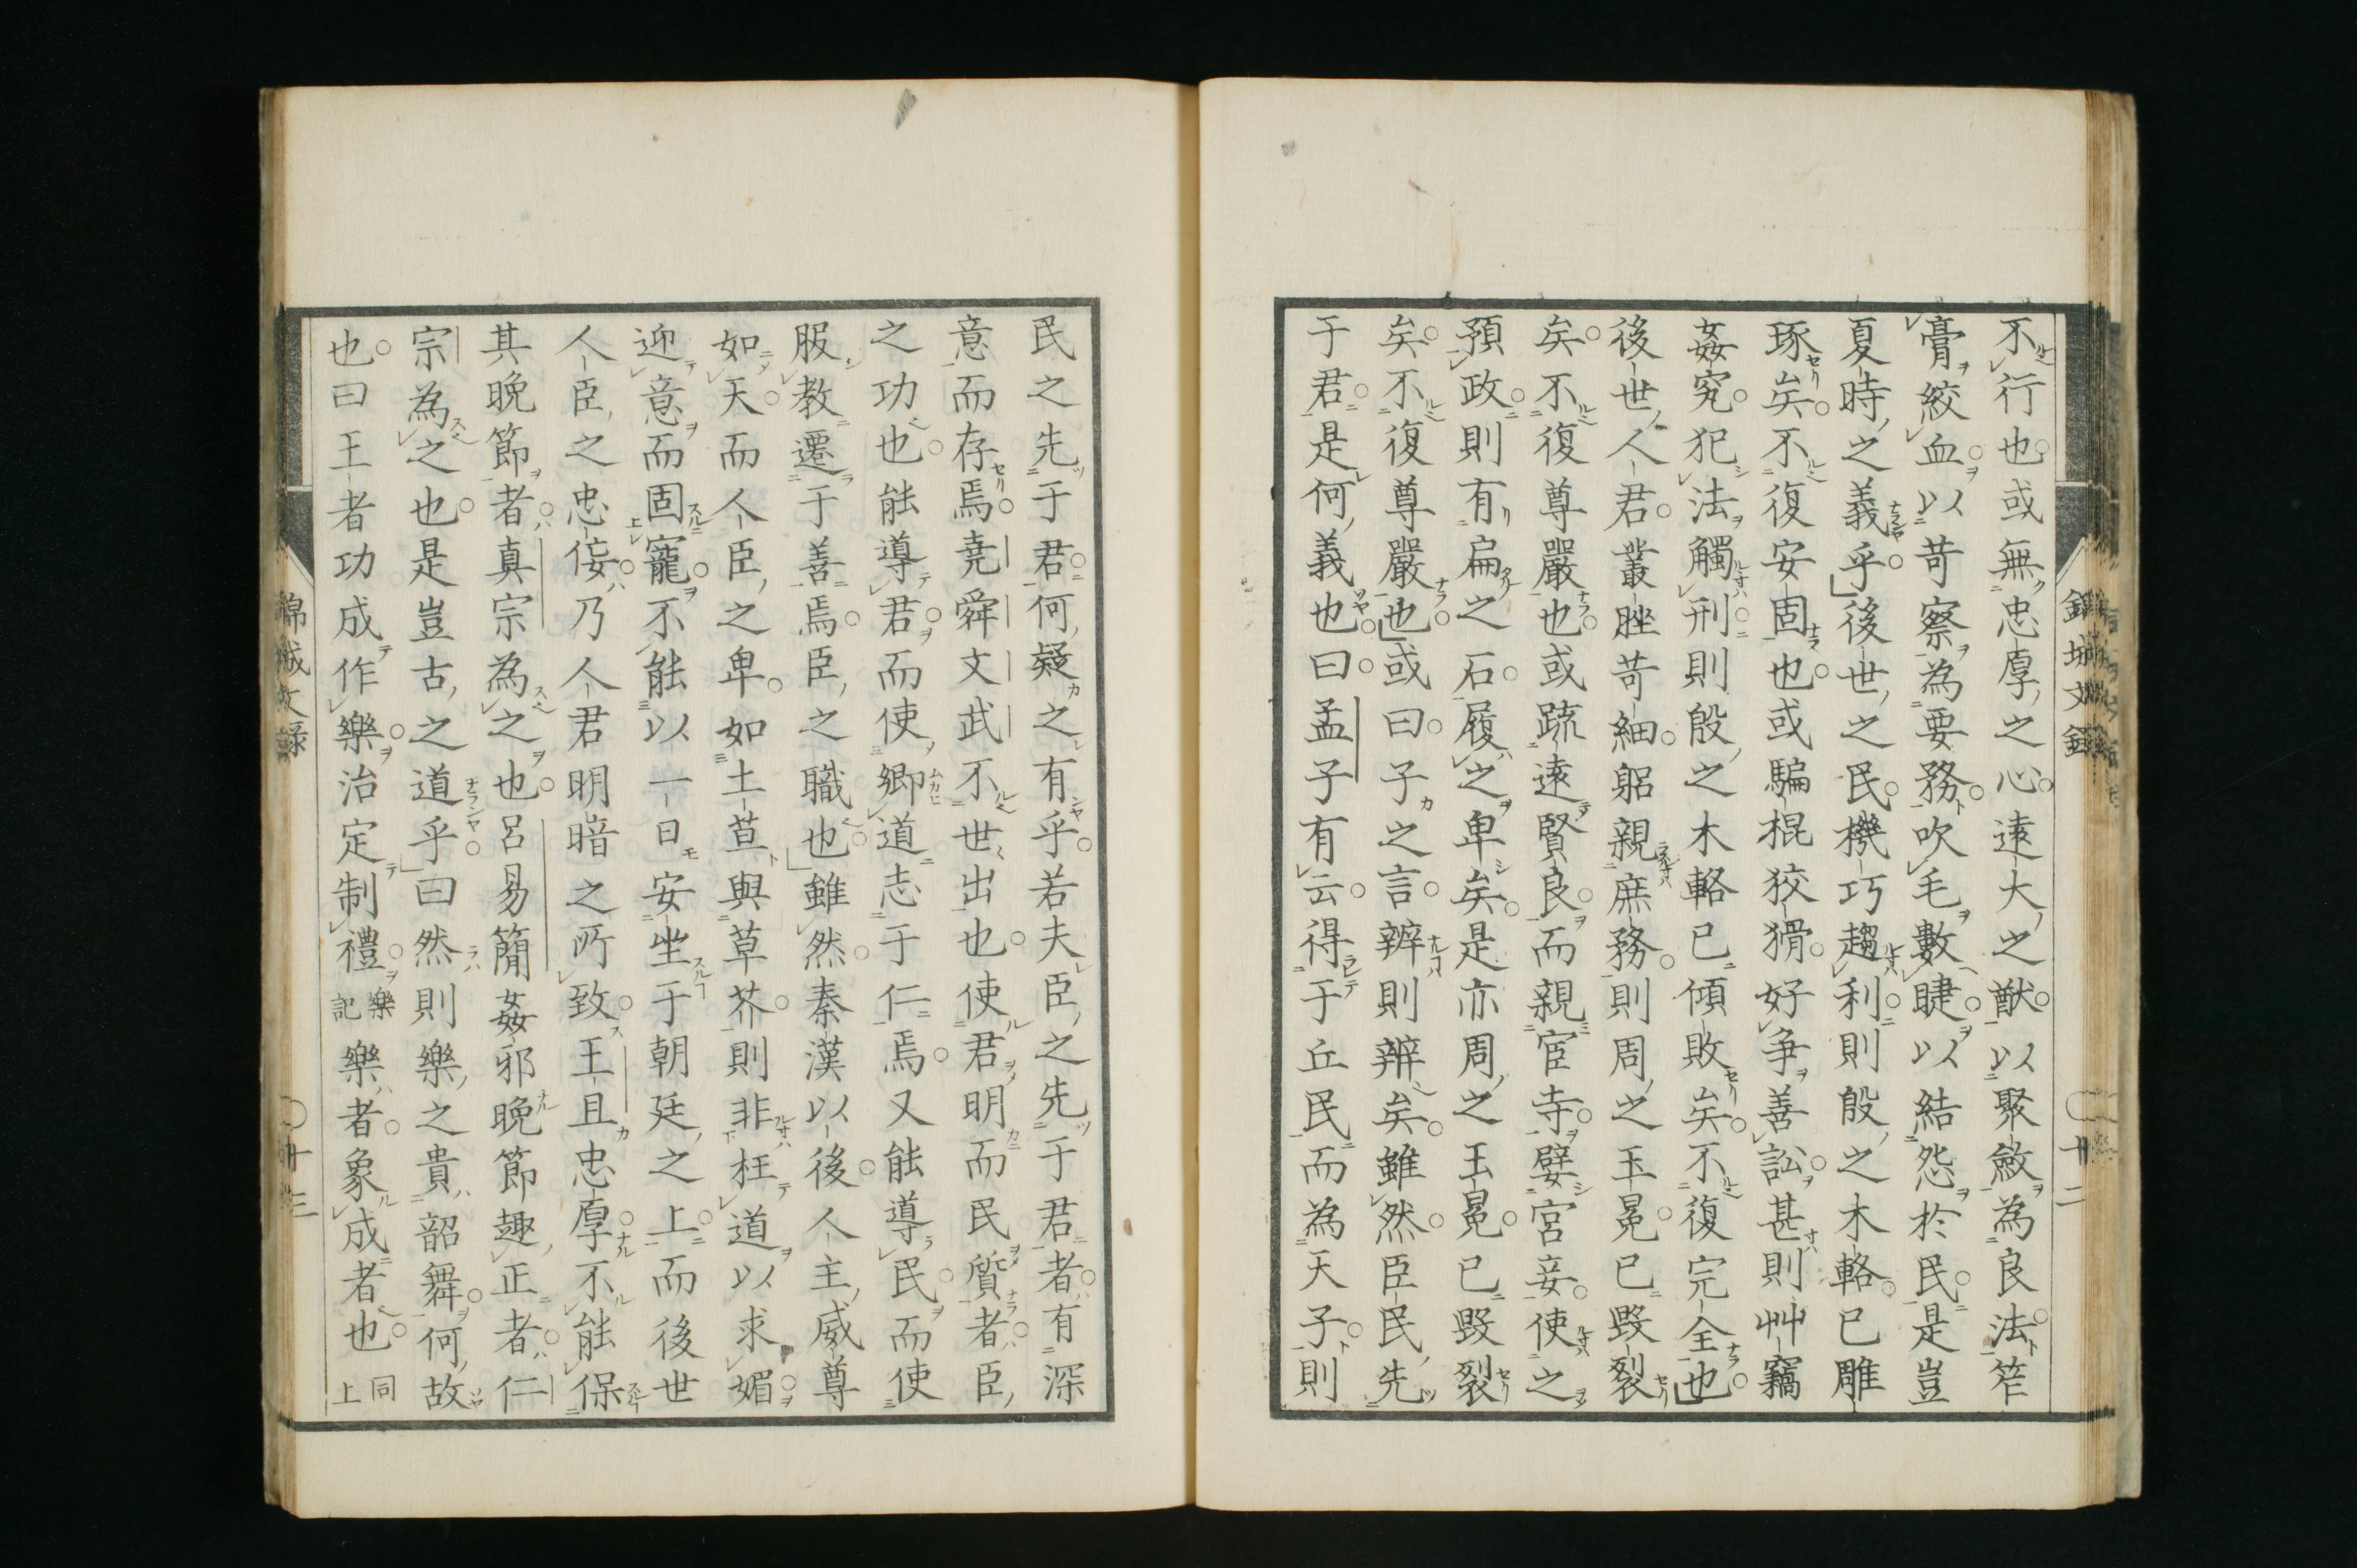 不行也或無忠厚之心遠大之猷以聚斂為良法笮
膏絞血以苛察為要務吹毛數睫以結怨於民是豈
夏時之義乎後世之民機巧趨利則殷之木輅已雕
琢矣不復安固也或騙棍狡猾好爭善訟甚則艸竊
姦究犯法觸刑則殷之木輅已傾敗矣不復完全也
後世人君叢脞苛細躬親庶務則周之玉冕已毀裂
矣不復尊嚴也或疏遠賢良而親宦寺嬖宮妾使之
預政則有扁之石履之卑矣是亦周之玉冕已毀裂
矣不復尊嚴也或曰子之言辨則辨矣雖然臣民先
于君是何義也曰孟子有云得于丘民而為天子則
錦城文録
十二
民之先于君何疑之有乎若夫臣之先于君者有深
意而存焉堯舜文武不世出也使君明而民質者臣
之功也能導君而使鄉道志于仁焉又能導民而使
服教遷于善焉臣之職也雖然秦漢以後人主威尊
如天而人臣之卑如土苴與草芥則非枉道以求媚
迎意而固寵不能以一日安坐于朝廷之上而後世
人臣之忠佞乃人君明暗之所致王旦忠厚不能保
其晚節者真宗為之也呂易簡姦邪晚節趣正者仁
宗為之也是豈古之道乎曰然則樂之貴韶舞何故
也曰王者功成作樂治定制禮樂記樂者象成者也同上
錦城文録
十三